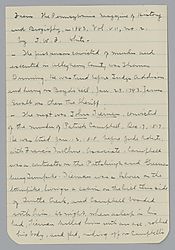 From The Pennsylvania Magazine of History
and Biography, 1883, Vol. VII, No. 2.
by T. J. F.
The first person convicted of murder and
executed in Allegheny County was Thomas
Dunning. He was tried before Judge Addison
and hung on Boyd's Hill. Jan. 23, 1793. James
was then the Sheriff.
The next was John Tiernan, convicted
of the murder of Patrick Campbell, Dec. 7, 1817.
He was tried Jan. 12, 1818 before Judge
with Francis McClure, Associate. Campbell
was a contractor on the Pittsburgh and Greens-
burg Turnpike. Tiernan was a laborer on the
turnpike, living in a cabin on the left
of Turtle Creek, and Campbell boarded
with him. At night, when asleep in his
bed, Tiernan killed him with an axe, robbed
his body, and fled, riding off on Campbell's